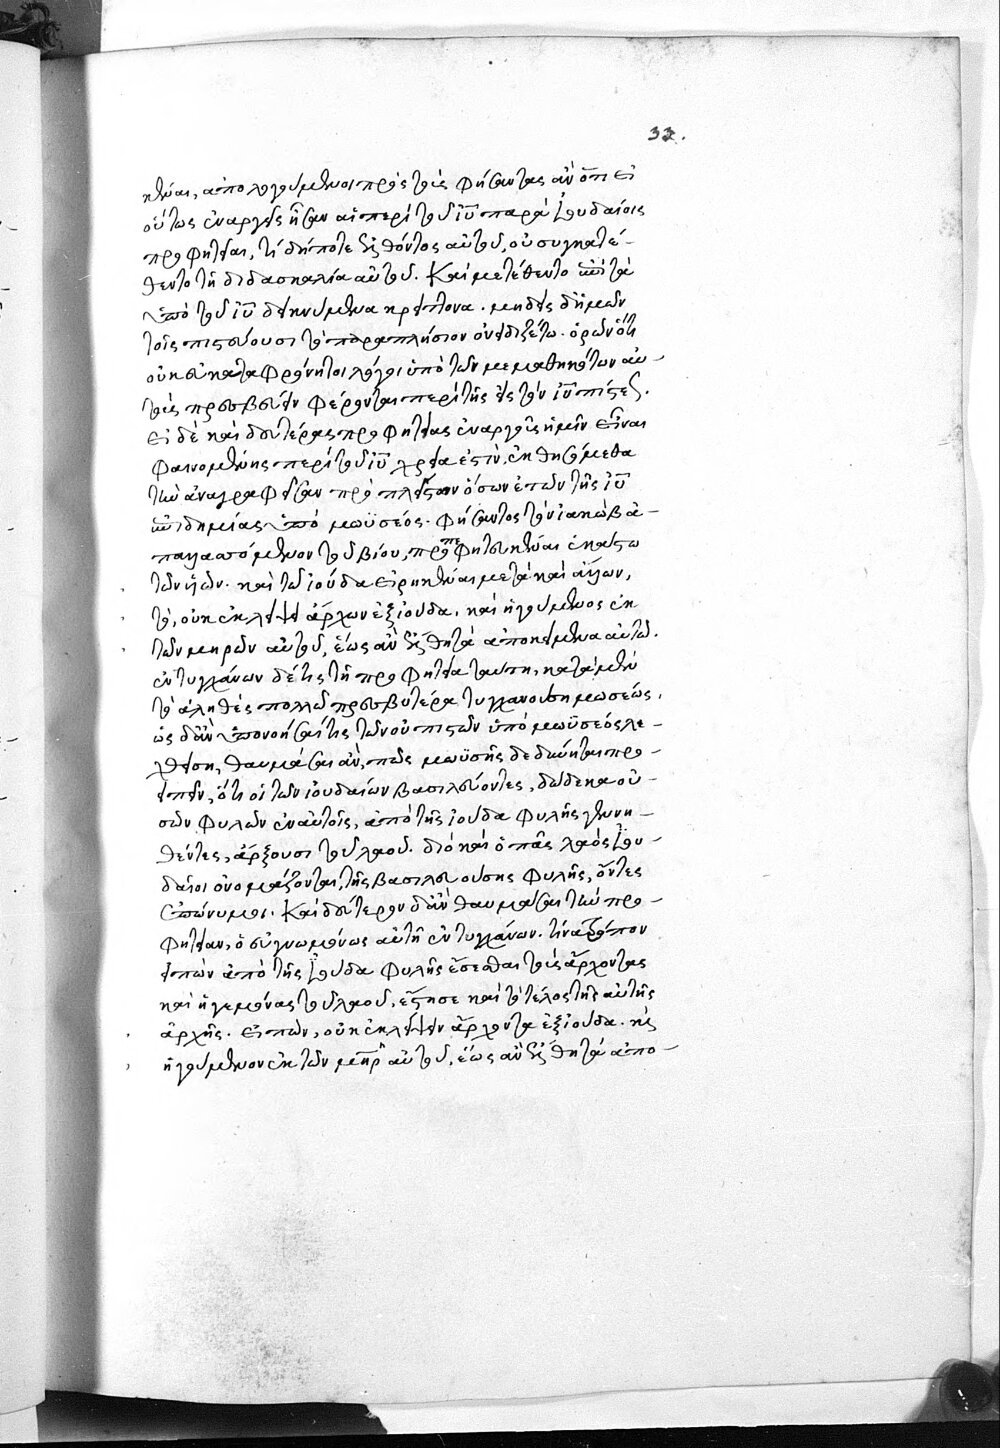 33.
κέναι, ἀπολογούμενοι πρὸς τοὺς φήσαντας ἂν ὅτι εἰ
οὕτως ἐναργεῖς ἦσαν αἱ περὶ τοῦ ἰῦ παρὰ ἰουδαίοις
προφητεῖαι, τί δήποτε ἐλθόντος αὐτοῦ, οὐ συγκατέ-
θεντο τῇ διδασκαλίᾳ αὐτοῦ. Καὶ μετέθεντο ἐπὶ τὰ
ὑπὸ τοῦ ἰῦ δεικνύμενα κρείττονα. μηδεὶς δ' ἡμῶν
τοῖς πιστεύουσι τὸ παραπλήσιον ὀνειδιζέτω. ὁρῶν ὅτι
οὐκ εὐκαταφρόνητοι λόγοι ὑπὸ τῶν μεμαθηκότων αὐ-
τοὺς πρεσβεύειν φέρονται περὶ τῆς εἰς τὸν ἰῦ πίστεως.
Εἰ δὲ καὶ δευτέρας προφητείας ἐναργοῦς ἡμῖν εἶναι
φαινομένης περὶ τοῦ ἰῦ χρεία ἐστὶν, ἐκθησόμεθα
τὴν ἀναγραφεῖσαν πρὸ πλείστων ὅσων ἐτῶν τῆς ἰῦ
ἐπιδημίας ὑπὸ μωϋσέος. φήσαντος τὸν ἰακὼβ ἀ-
παλλαττόμενον τοῦ βίου, προπεφητευκέναι ἑκάστῳ
τῶν υἱῶν. καὶ τῷ ἰούδα εἰρηκέναι μετὰ καὶ ἄλλων,
τὸ, οὐκ ἐκλείψει ἄρχων ἐξ ἰούδα, καὶ ἡγούμενος ἐκ
τῶν μηρῶν αὐτοῦ, ἕως ἂν ἔλθῃ τὰ ἀποκείμενα αὐτῷ.
ἐντυγχάνων δέ τις τῇ προφητείᾳ ταύτῃ, κατὰ μὲν
τὸ ἀληθὲς πολλῷ πρεσβυτέρᾳ τυγχανούσῃ μωσέως,
ὡς δ' ἂν ὑπονοήσαι τις τῶν οὐ πιστῶν ὑπὸ μωϋσέος λε-
χθείσῃ, θαυμάσαι ἂν, πῶς μωϋσῆς δεδύνηται προ-
ειπεῖν, ὅτι οἱ τῶν ἰουδαίων βασιλεύοντες, δώδεκα οὐ-
σῶν φυλῶν ἐν αὐτοῖς, ἀπὸ τῆς ἰούδα φυλῆς γεννη-
θέντες, ἄρξουσι τοῦ λαοῦ. διὸ καὶ ὁ πᾶς λαὸς ἰου-
δαῖοι ὀνομάζονται, τῆς βασιλευούσης φυλῆς, ὄντες
ἐπώνυμοι. Καὶ δεύτερον δ' ἂν θαυμάσαι τὴν προ-
φητείαν, ὁ εὐγνωμόνως αὐτῇ ἐντυγχάνων. τίνα τρόπον
εἰπὼν ἀπὸ τῆς ἰούδα φυλῆς ἔσεσθαι τοὺς ἄρχοντας
καὶ ἡγεμόνας τοῦ λαοῦ, ἔστησε καὶ τὸ τέλος τῆς αὐτῆς
ἀρχῆς. εἰπὼν, οὐκ ἐκλείψειν ἄρχοντα ἐξ ἰούδα. καὶ
ἡγούμενον ἐκ τῶν μηρῶν αὐτοῦ, ἕως ἂν ἔλθῃ τὰ ἀπο-